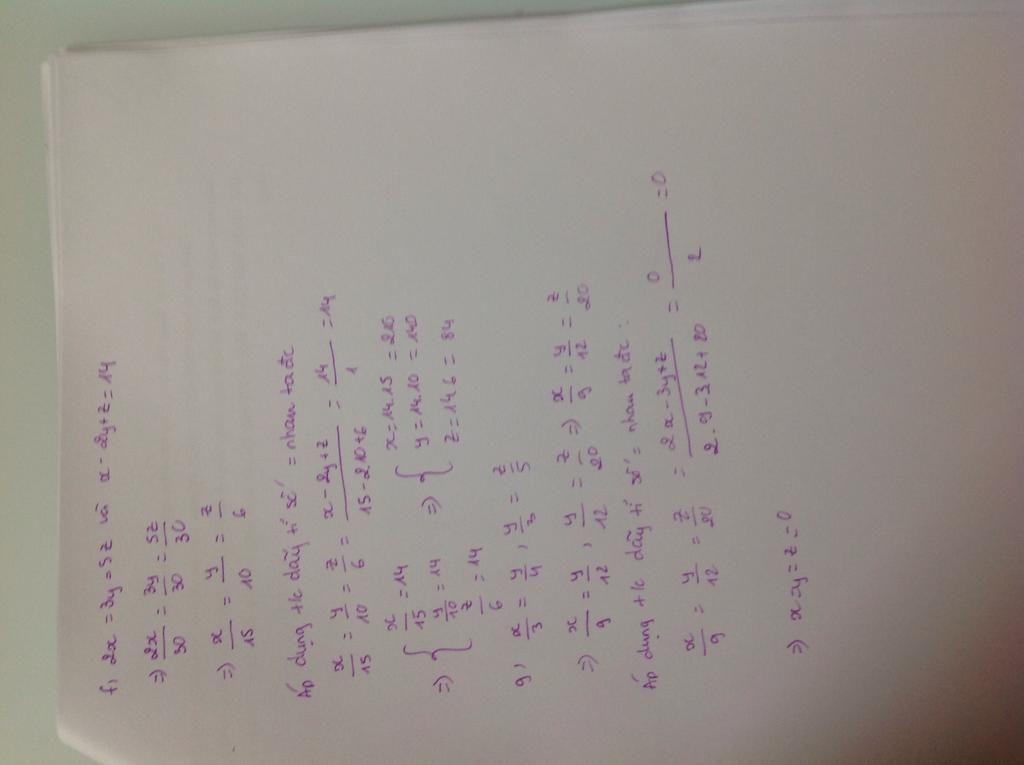 f, 2x = 3y = 5z và x - 2y + z = 14
=) 2x/30 = 3y/30 = 5z/30
=) x/15 = y/10 = z/6
Áp dụng t/c dãy tỉ số = nhau ta đc
x/15 = y/10 = z/6 = x - 2y + z / 15 - 2.10 + 6 = 14/1 = 14
=) { x/15 = 14 y/10 = 14 z/6 = 14 =) { x = 14.15 = 210 y = 14.10 = 140 z = 14.6 = 84
g, x/3 = y/4, y/3 = z/5
=) x/9 = y/12, y/12 = z/20 =) x/9 = y/12 = z/20
Áp dụng t/c dãy tỉ số = nhau ta đc:
x/9 = y/12 = z/20 = 2x - 3y + z / 2.9 - 3.12 + 20 = 0/2 = 0
=) x = y = z = 0